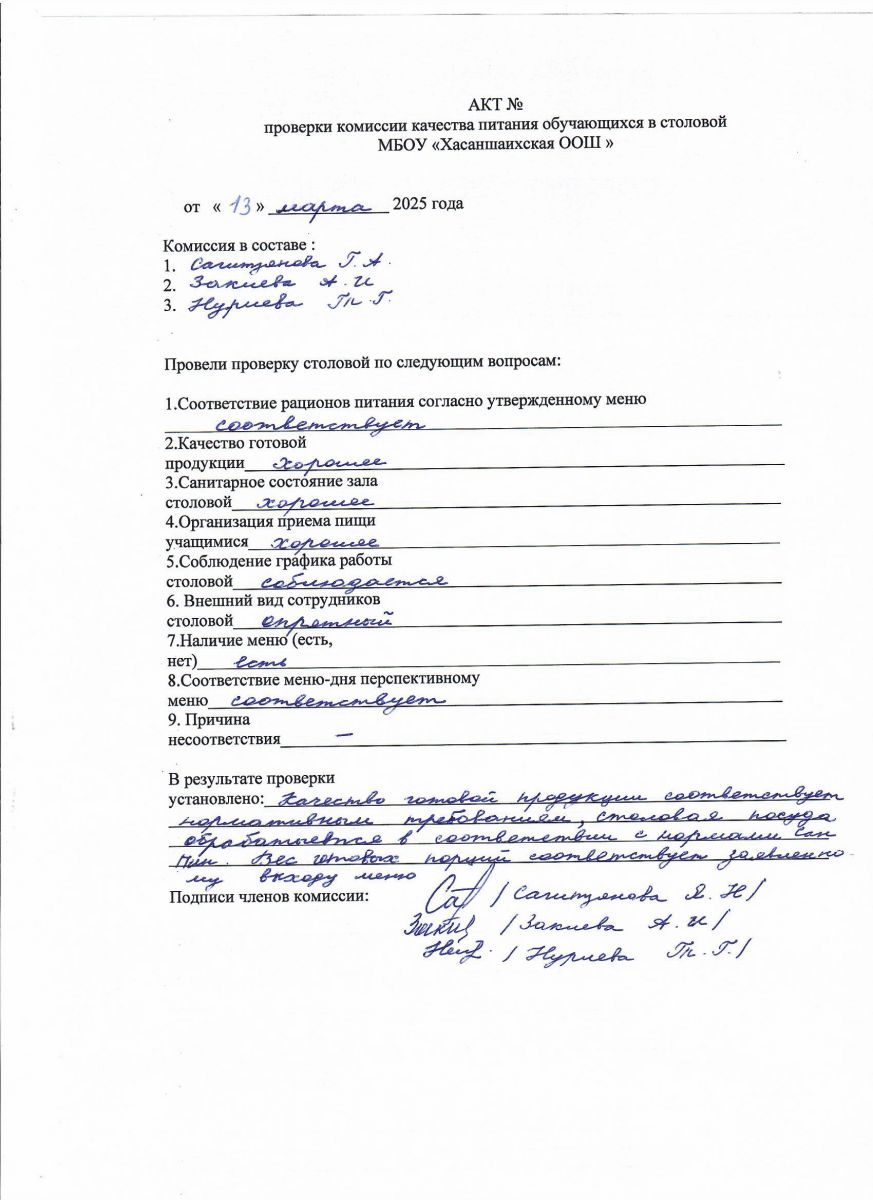 АКТ №
проверки комиссии качества питания обучающихся в столовой
МБОУ «Хасаншаихская ООШ »
от « 13 » марта 2025 года
Комиссия в составе :
1. Сагитзянова Г. А.
2. Закиева А. И
3. Нуриева Гп. Г.
Провели проверку столовой по следующим вопросам:
1.Соответствие рационов питания согласно утвержденному меню
соответствует
2.Качество готовой
продукции хорошее
3.Санитарное состояние зала
столовой хорошее
4.Организация приема пищи
учащимися хорошее
5.Соблюдение графика работы
столовой соблюдается
6. Внешний вид сотрудников
столовой опрятный
7.Наличие меню (есть,
нет) есть
8.Соответствие меню-дня перспективному
меню соответствует
9. Причина
несоответствия –
В результате проверки
установлено: Качество готовой продукции соответствует
нормативным требованием, столовая посуда
обрабатывется в соответствии с нормами Сан
Пин. Вес готовых порций соответствует заявленно
му выходу меню
Подписи членов комиссии: / Сагитзянова Я. Н /
/ Закиева А. И /
/ Нуриева Гп. Г. /